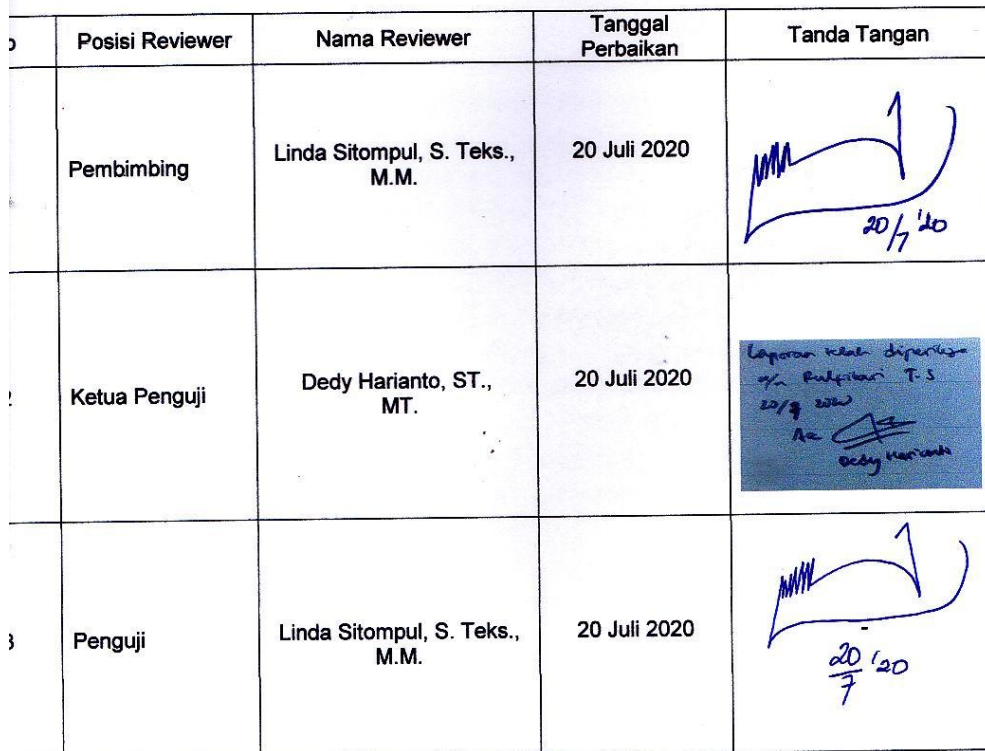 o Posisi Reviewer Nama Reviewer Tanggal Perbaikan Tanda Tangan
Pembimbing Linda Sitompul, S. Teks., M.M. 20 Juli 2020
20/7 '20
2 Ketua Penguji Dedy Harianto, ST., MT. 20 Juli 2020
Laporan telah diperiksa
a/n T.S
2020
Dedy Harianto
3 Penguji Linda Sitompul, S. Teks., M.M. 20 Juli 2020
20/7 '20